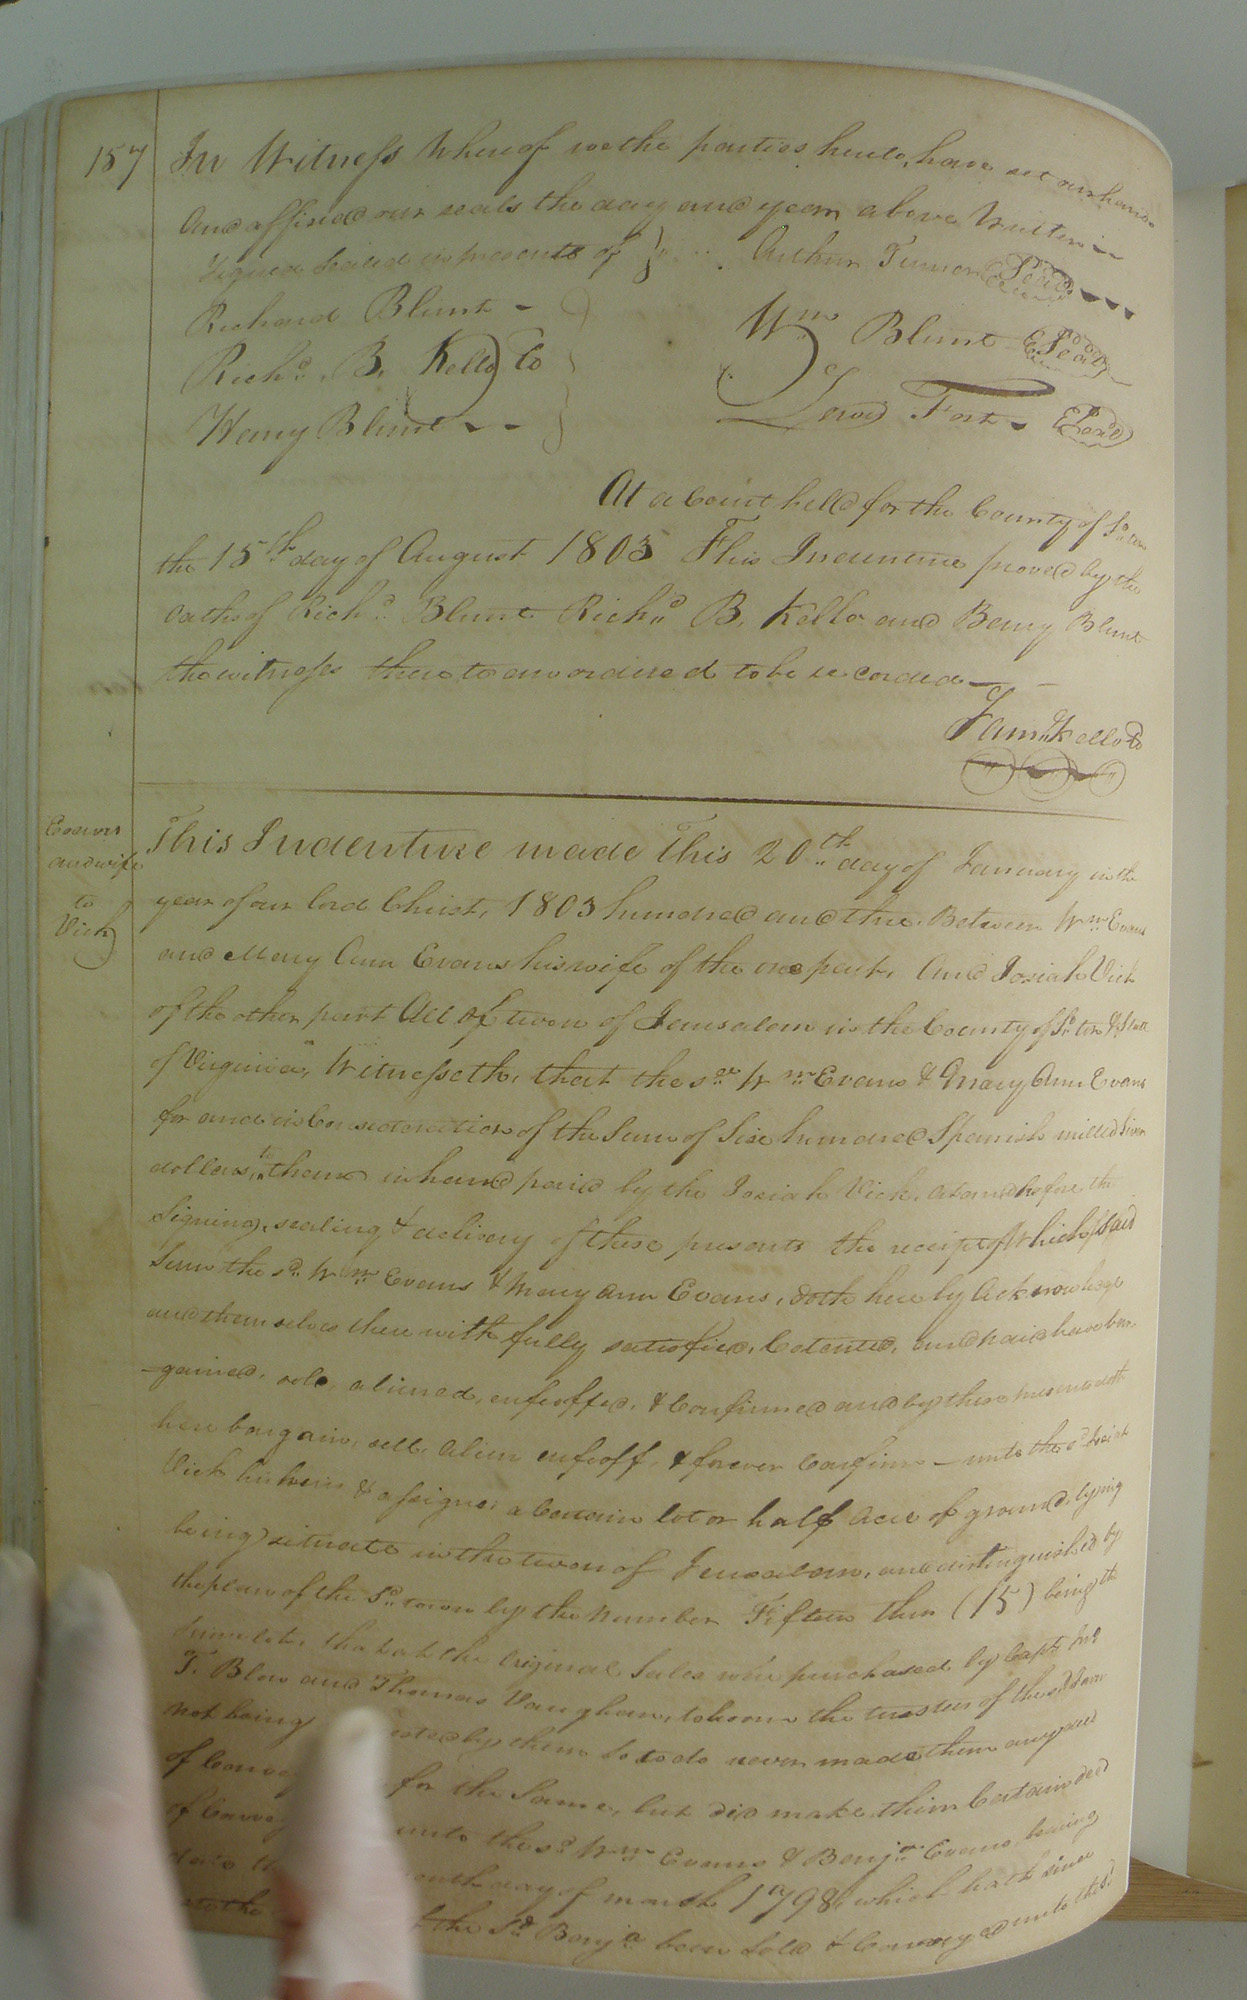 157
In Witness Whereof we the parties hereto, have set our hands
And affixed our seals the day and year above Written
Signed Sealed in presents of } Arthur Turner Seal
Richard Blunt
Richd. B. Kello
Wm Blunt Seal
Henry Blunt
Lewis Fort Seal
At a Court held for the County of So.ton
the 15th day of August 1803 This Indenture proved by the
oaths of Richd. Blunt Richd. B. Kello and Benny Blunt
the witness thereto an ordered to be recorded
Saml. Kello
Evans
and wife
to
Vick
This Indenture made This 20th day of January in the
year of our lord Christ, 1803 hundred and three. Between Wm Evans
and Mary Ann Evans his wife of the one part, And Josiah Vick
of the other part All of town of Jerusalem in the County of So.ton & State
of Virginia, Witnesseth, that the sd. Wm Evans & Mary Ann Evans
for and in Consideration of the Sum of Six hundred Spanish milled Silver
dollars, to them in hand paid by the Josiah Vick, at and before the
Signing, sealing & delivery of these presents the receipt of Which said
Sum the sd. Wm Evans & Mary Ann Evans, doth hereby Acknowledge
and themselves there with fully satisfied, Contented, and paid have bar
-gained, sold, aliened, enfeoffed, & Confirmed and by these presents doth
bargain, sell, Alien enfeoff, & forever Confirm unto the sd. Josiah
Vick his heirs & assigns a Certain lot or half Acre of ground, lying
being) situate in the town of Jerusalem, and distinguished by
the plan of the Sd. town by the number Fifteen (15) being the
that at the Original Sales were purchased by Capt.
T. Blow and Thomas Vaughan, to whom the trustees of the sd. Town
not being by them so to do never made them any deed
of for the Same, but did make them Certain deed
of unto the sd. Wm Evans & Benja. Evans bearing
date day of march 1798, which hath since
the Sd. Benja. been Sold & Conveyed unto the sd.